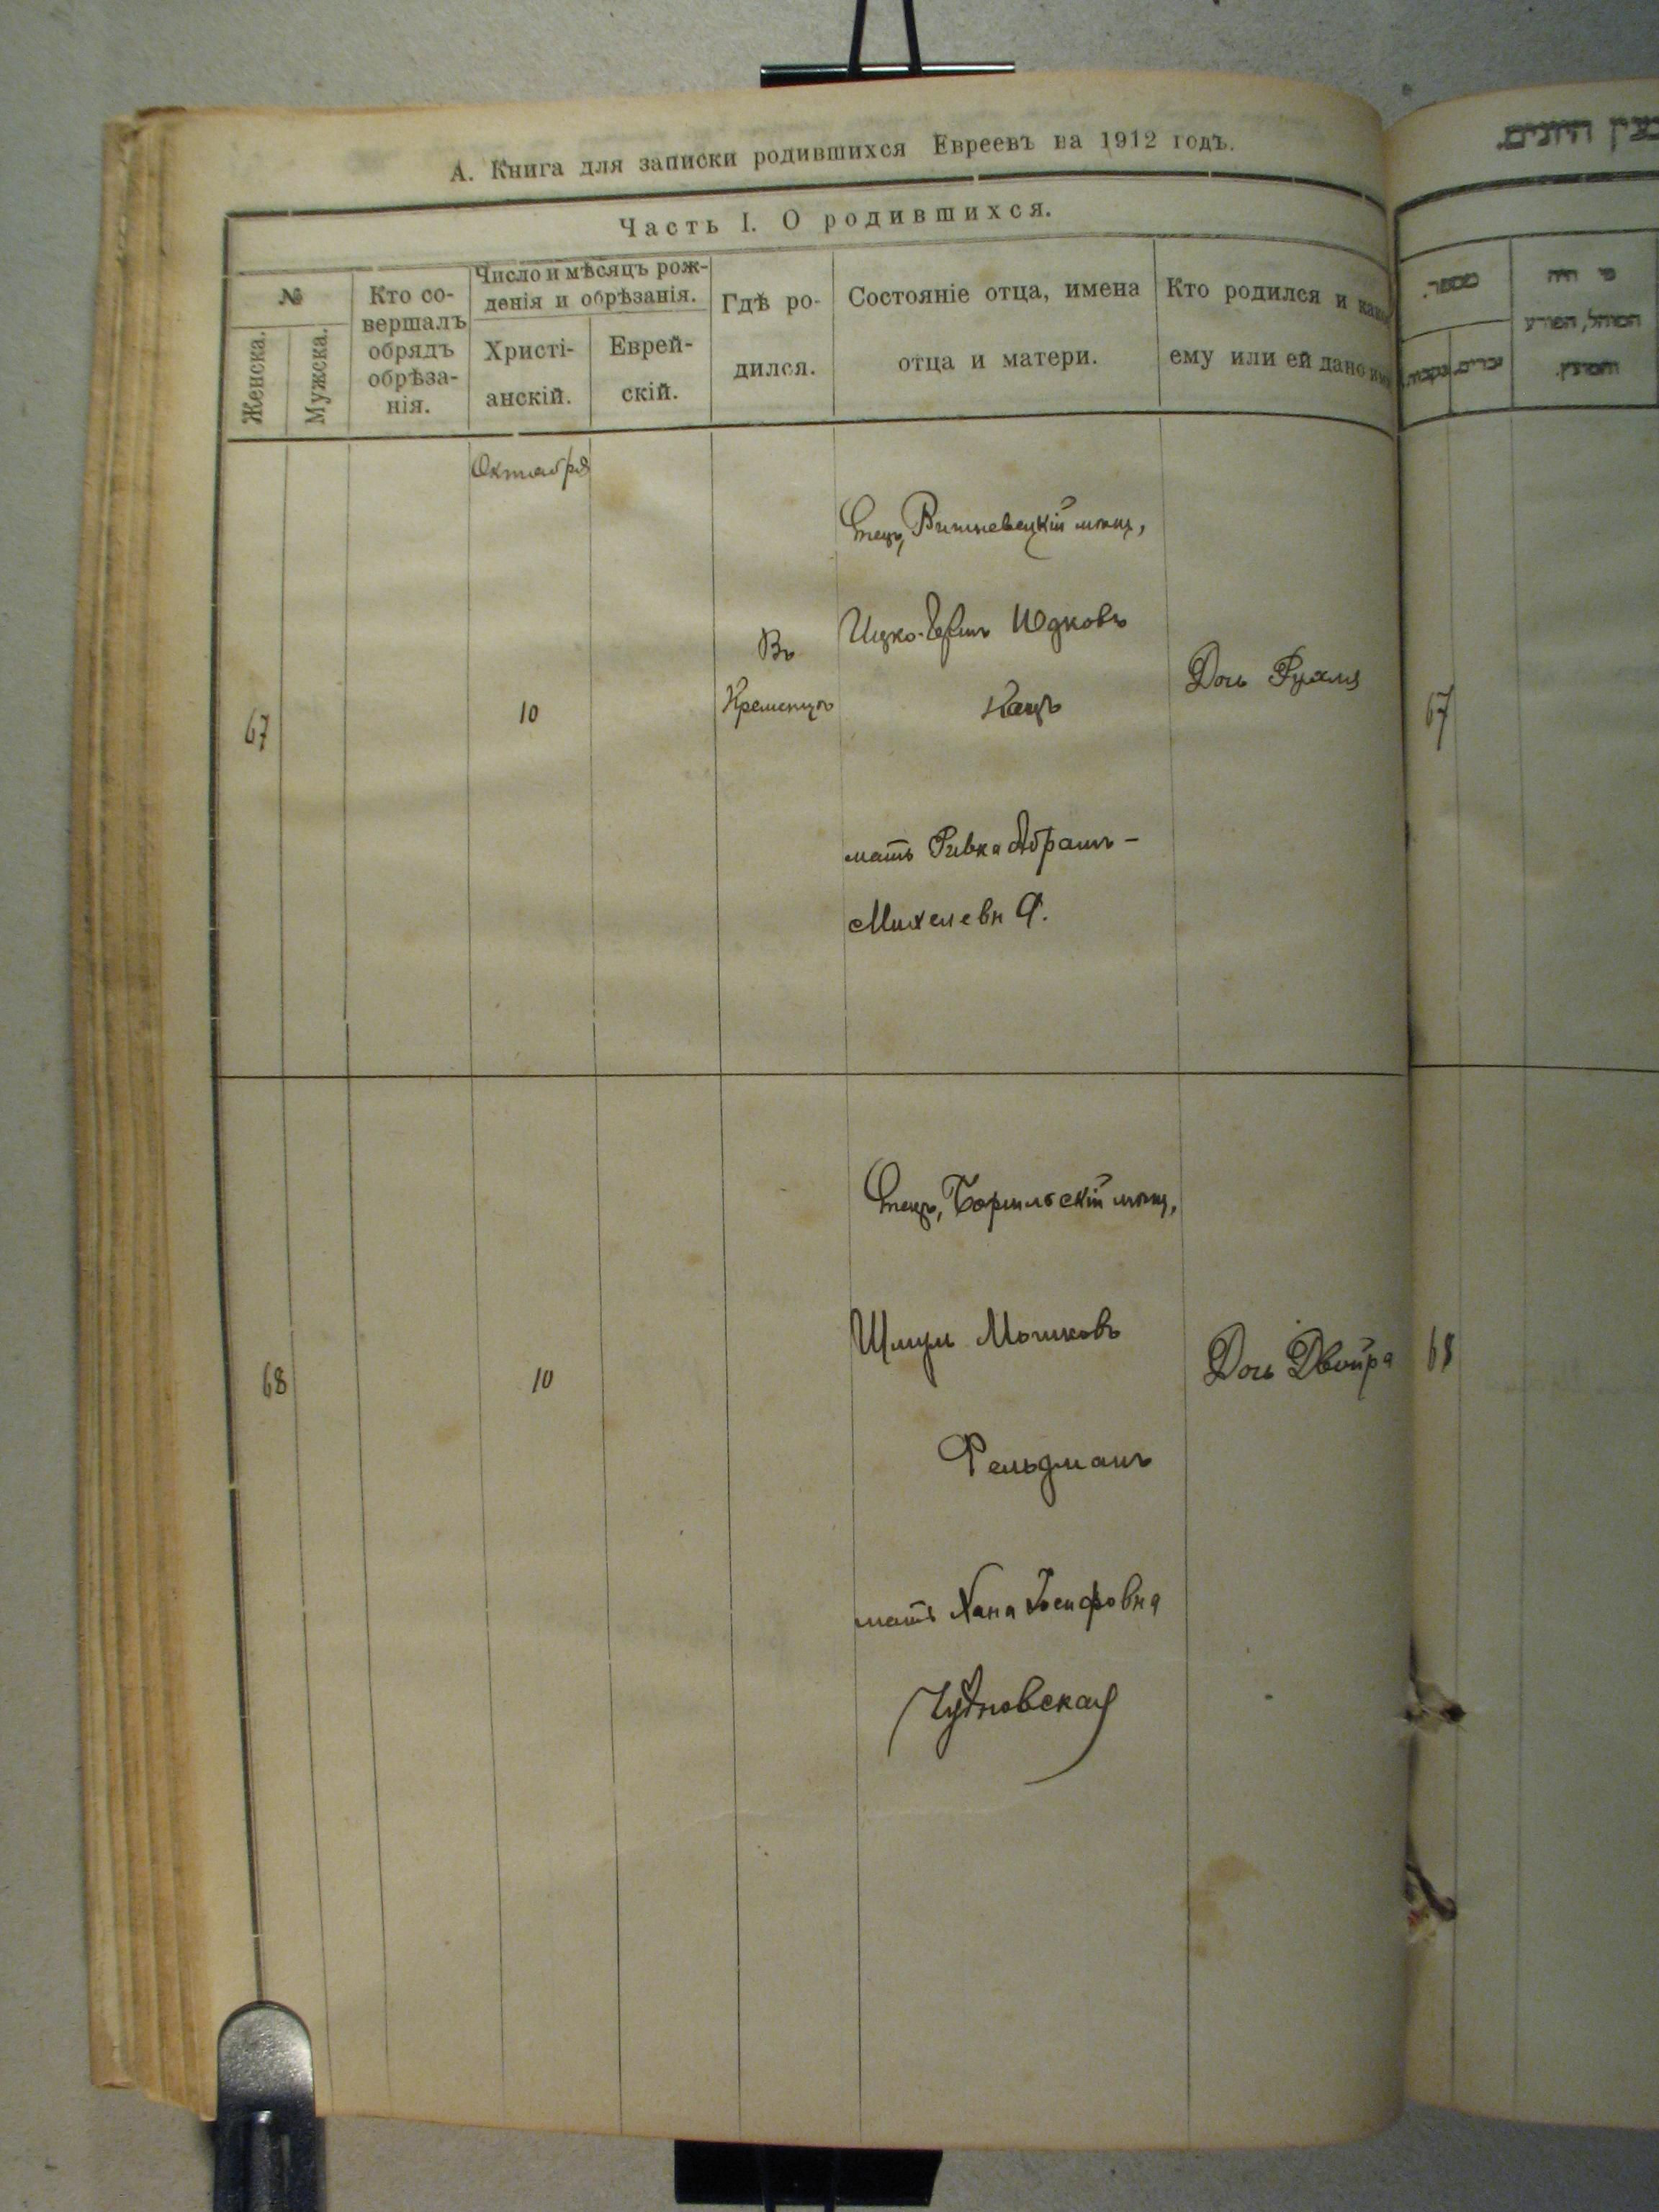 А. Книга для записки родившихся Евреевъ на 1912 годъ.
Часть I. О родившихся.
№
Женска.
Мужска.
Кто со-
вершалъ
обрядъ
обрѣза-
нія.
Число и мѣсяцъ рож-
денія и обрѣзанія.
Христі-
анскій.
Еврей-
скій.
Гдѣ ро-
дился.
Состояніе отца, имена
отца и матери.
Кто родился и какое
ему или ей дано имя
Октября
67
10
Въ
Кременцѣ
Отецъ, Вишневецкій мѣщ,
Ицко-Гершъ Юдковъ
Кацъ
мать Ривка Абрамъ-
Михелевна.
Дочь Рухля
67
68
10
Отецъ, мѣщ,
Шмуль Мошковъ
Фельдманъ
мать Хана Іосифовна
Чудновская
Дочь Двойра
68